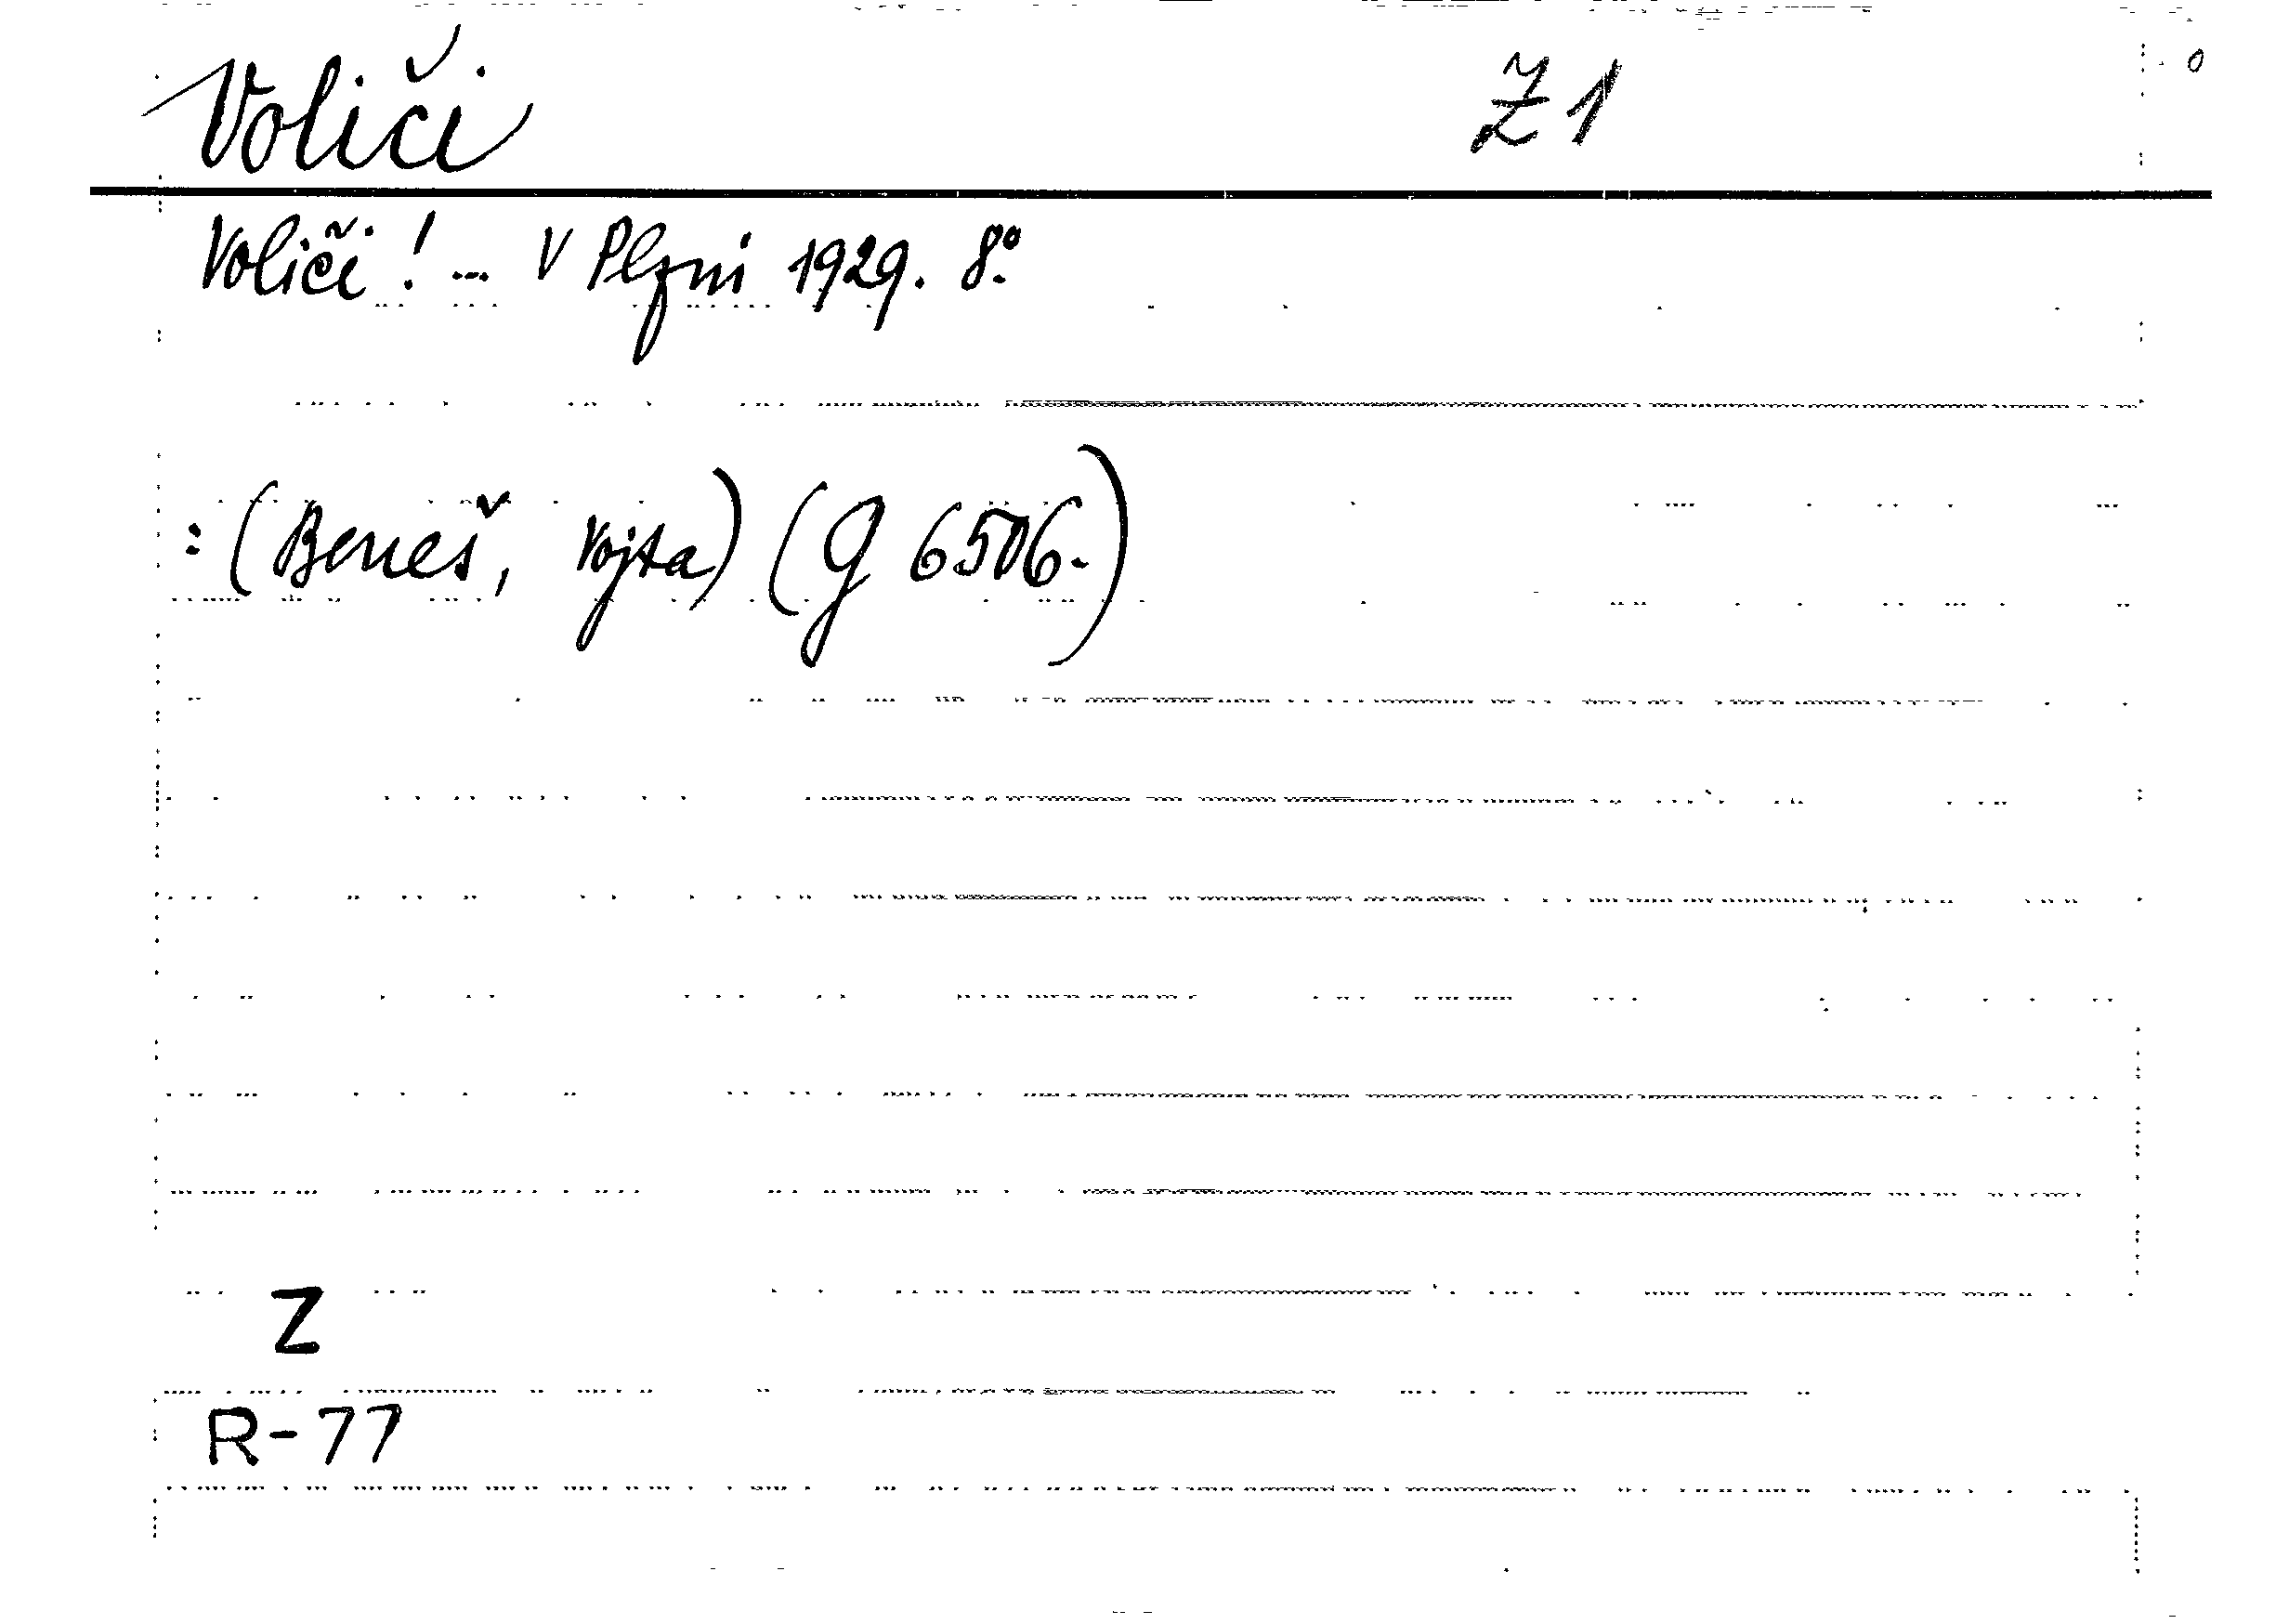 Voliči Z 1
Voliči! ... V Plzni 1929. 8°.
: (Beneš, Vojta) (G 6506.)
Z
R-77